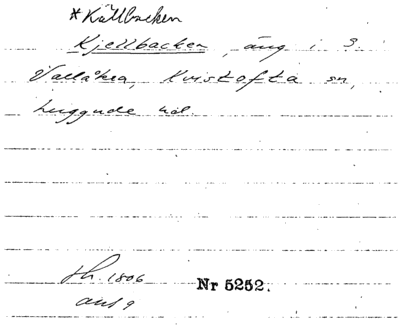 *Källbacken
Kjellbacken, äng i 3.
Vallåkra, Kvistofta sn,
Luggude hd.
sh. 1806
anl 9
Nr 5252.